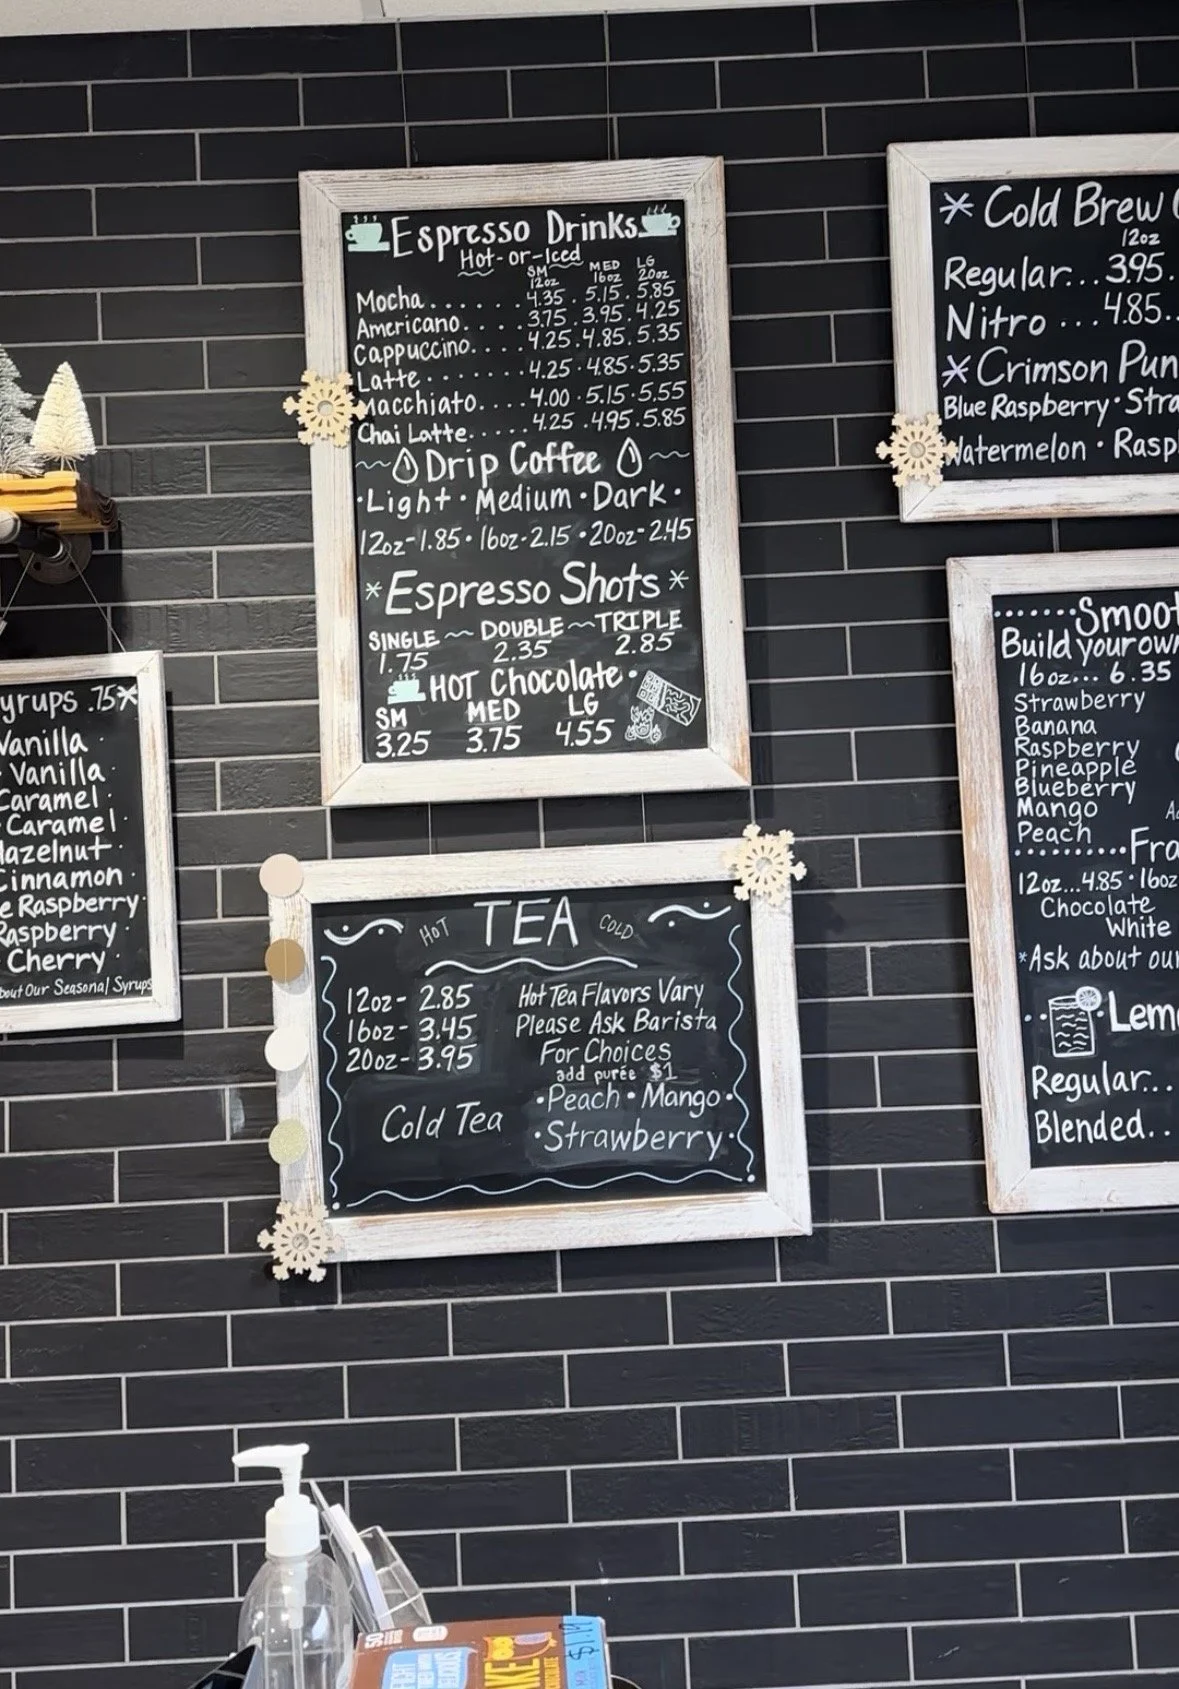 Espresso Drinks
Hot-or-Iced
SM MED LG
12oz 16oz 20oz
Mocha . . . . . . 4.35 . 5.15 . 5.85
Americano . . . . 3.75 . 3.95 . 4.25
Cappuccino . . . . 4.25 . 4.85 . 5.35
Latte . . . . . . . 4.25 . 4.85 . 5.35
Macchiato . . . . 4.00 . 5.15 . 5.55
Chai Latte . . . . . 4.25 . 4.95 . 5.85
Drip Coffee
·Light · Medium · Dark ·
12oz-1.85 · 16oz-2.15 · 20oz-2.45
*Espresso Shots*
SINGLE ~ DOUBLE ~ TRIPLE
1.75 2.35 2.85
HOT Chocolate·
SM MED LG
3.25 3.75 4.55
HOT TEA COLD
12oz- 2.85
16oz- 3.45
20oz- 3.95
Cold Tea
Hot Tea Flavors Vary
Please Ask Barista
For Choices
add purée $1
·Peach · Mango·
·Strawberry·
yrups .75*
Vanilla ·
Vanilla ·
Caramel ·
· Caramel ·
azelnut ·
Cinnamon ·
e Raspberry ·
Raspberry ·
Cherry ·
bout Our Seasonal Syrups
* Cold Brew
12oz
Regular... 3.95 .
Nitro ... 4.85 ..
* Crimson Pun
Blue Raspberry · Stra
Watermelon · Rasp
......Smoot
Build your own
16oz... 6.35
Strawberry
Banana
Raspberry
Pineapple
Blueberry
Mango
Peach
.........Fra
12oz...4.85 · 16oz
Chocolate
White
*Ask about our
Lem
Regular...
Blended..
$1.19